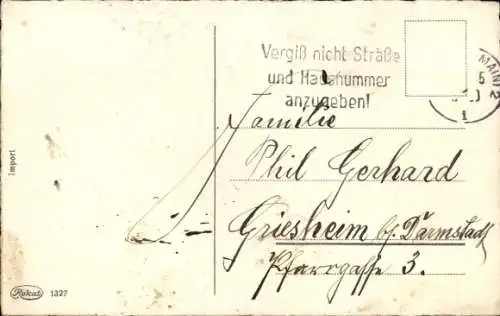 Vergiß nicht Straße
und Hausnummer
anzugeben!
MAINZ 2
Familie
Phil Gerhard
Griesheim b/ Darmstadt
Pfarrgasse 3.
Import
Rokat 1327